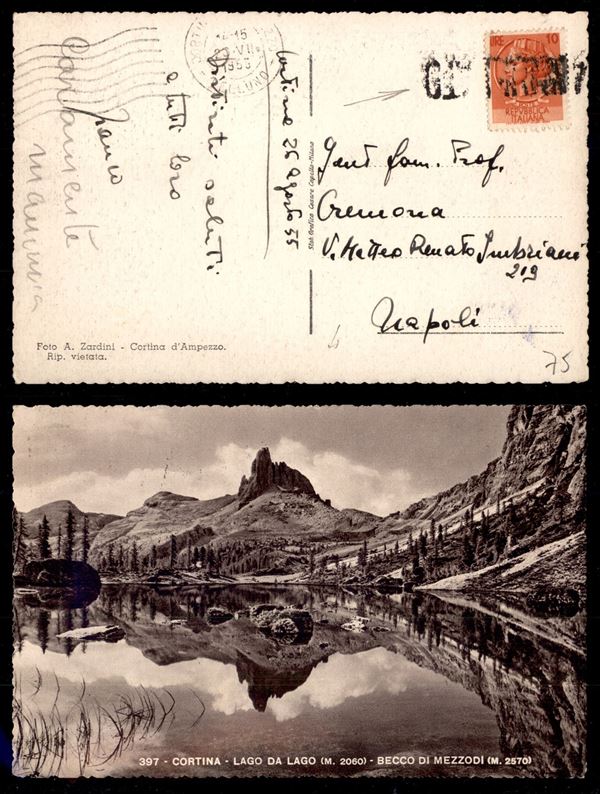 LIRE 10
REPUBBLICA
ITALIANA
1955
Cortina 26 Agosto 55
Distinti saluti
a tutti loro
Franco
Cordialmente
Stab. Grafico Cesare Capello - Milano
Gent. fam. Prof.
Cremona
V. Matteo Renato Imbriani
219
Napoli
75
Foto A. Zardini - Cortina d'Ampezzo.
Rip. vietata.
397 - CORTINA - LAGO DA LAGO (M. 2060) - BECCO DI MEZZODÌ (M. 2570)